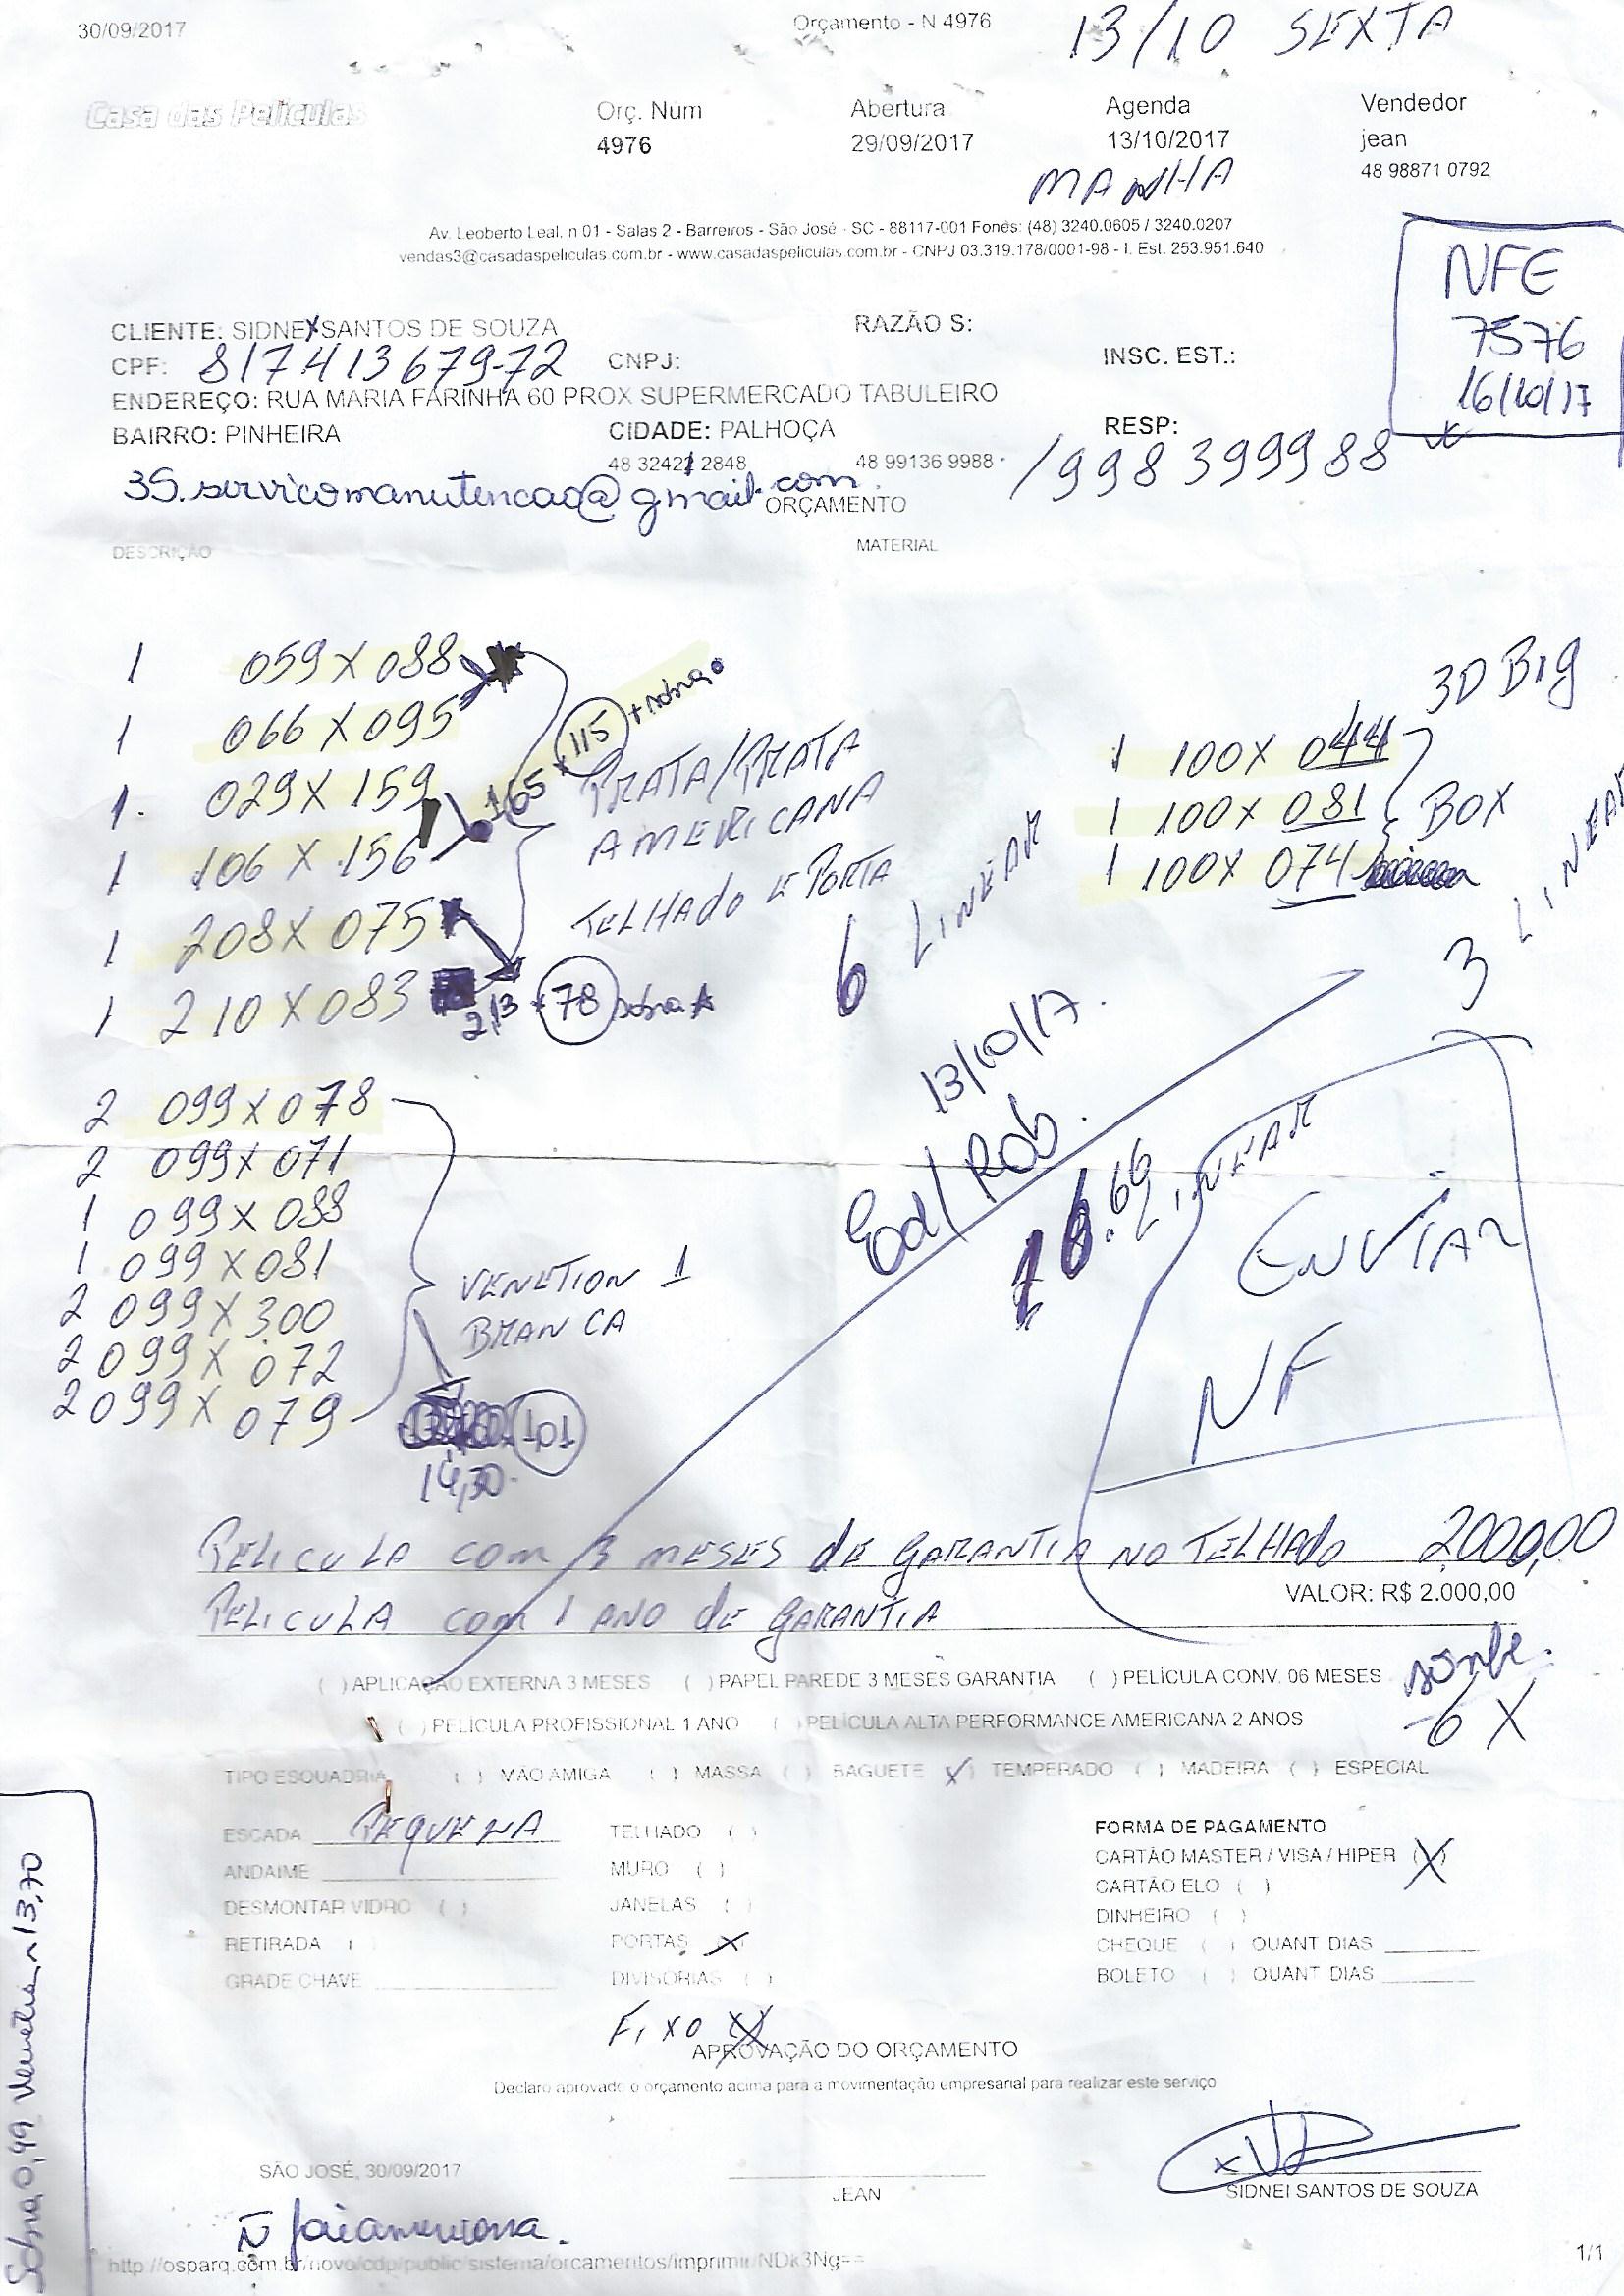 30/09/2017
Orçamento - N 4976
13/10 SEXTA
Casa das Peliculas
Orç. Num
Abertura
Agenda
Vendedor
4976
29/09/2017
13/10/2017
jean
MANHA
48 98871 0792
Av. Leoberto Leal, n 01 - Salas 2 - Barreiros - São José - SC - 88117-001 Fones: (48) 3240.0605 / 3240.0207
vendas3@casadaspeliculas.com.br - www.casadaspeliculas.com.br - CNPJ 03.319.178/0001-98 - I. Est. 253.951.640
NFE
7576
16/10/17
CLIENTE: SIDNEY SANTOS DE SOUZA
RAZÃO S:
CPF: 817413679-72
CNPJ:
INSC. EST.:
ENDEREÇO: RUA MARIA FARINHA 60 PROX SUPERMERCADO TABULEIRO
BAIRRO: PINHEIRA
CIDADE: PALHOÇA
RESP:
48 32422 2848
48 99136 9988
/998399988
35.servicomanutencao@gmail.com
ORÇAMENTO
DESCRIÇÃO
MATERIAL
1 059 X 088
1 066 X 095
1. 029 X 159
1 106 X 156
1 208 X 075
1 210 X 083
165 x 115 + sobra
PRATA/PRATA
AMERICANA
TELHADO E PORTA
2,13 x 78 sobra
6 LINEAR
3D Big
1 100 X 044
1 100 X 081
1 100 X 074
BOX
3 LINEAR
2 099 X 078
2 099 X 071
1 099 X 088
1 099 X 081
2 099 X 300
2 099 X 072
2 099 X 079
VENETION 1
BRANCA
101
14,30
13/10/17.
Ed/Rob.
16.69 LINEAR
ENVIAR
NF
PELICULA COM 3 MESES DE GARANTIA NO TELHADO 2000,00
VALOR: R$ 2.000,00
PELICULA COM 1 ANO DE GARANTIA
( ) APLICAÇÃO EXTERNA 3 MESES ( ) PAPEL PAREDE 3 MESES GARANTIA ( ) PELÍCULA CONV. 06 MESES
6 X
( ) PELÍCULA PROFISSIONAL 1 ANO ( ) PELÍCULA ALTA PERFORMANCE AMERICANA 2 ANOS
TIPO ESQUADRIA ( ) MÃO AMIGA ( ) MASSA ( ) BAGUETE (X) TEMPERADO ( ) MADEIRA ( ) ESPECIAL
ESCADA PEQUENA
TELHADO ( )
FORMA DE PAGAMENTO
ANDAIME
MURO ( )
CARTÃO MASTER / VISA / HIPER (X)
DESMONTAR VIDRO ( )
JANELAS ( )
CARTÃO ELO ( )
DINHEIRO ( )
RETIRADA ( )
PORTAS (X)
CHEQUE ( ) QUANT DIAS
GRADE CHAVE
DIVISORIAS ( )
BOLETO ( ) QUANT DIAS
FIXO (X)
APROVAÇÃO DO ORÇAMENTO
Declaro aprovado o orçamento acima para a movimentação empresarial para realizar este serviço
SÃO JOSÉ, 30/09/2017
JEAN
SIDNEI SANTOS DE SOUZA
Ñ foi americana.
http://osparq.com.br/novo/cdp/public/sistema/orcamentos/imprimir/NDk3Ng==
1/1
13,70